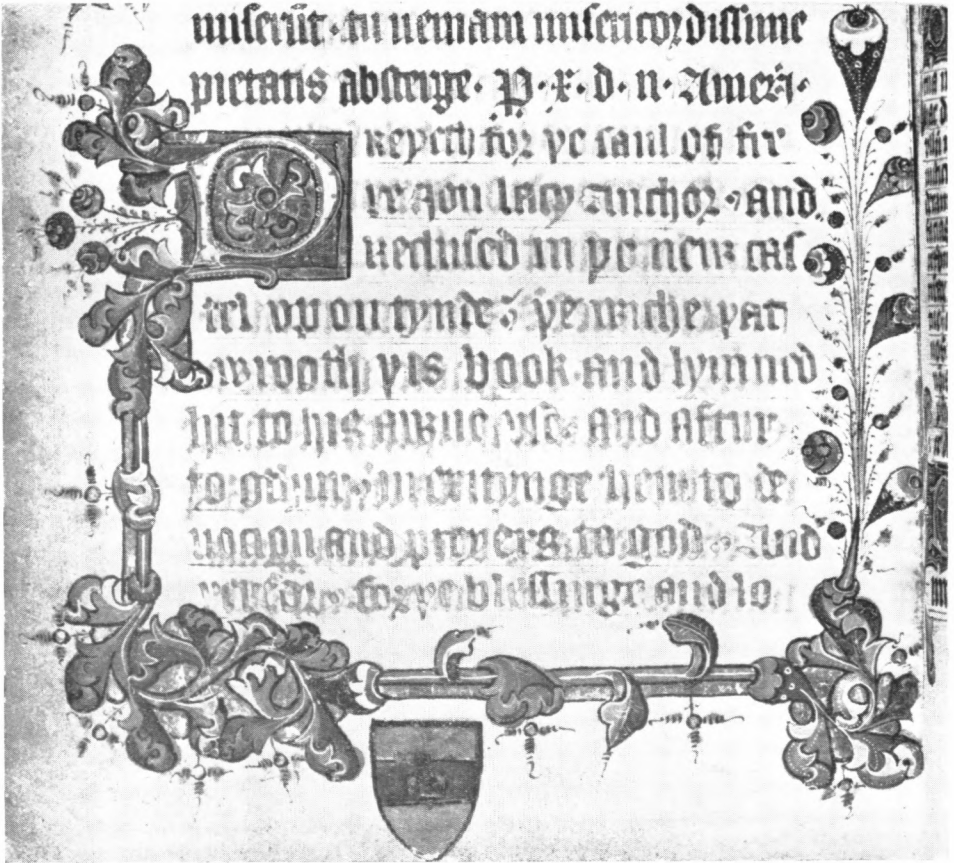 miserūt · tu ueniam misericordissime
pietatis absterge · P · x · d · n · Amen ·
Preyeth for þe saul of fre
re Jon lacy Anchor · and
reclused in þe new cas
tel vp on tynde · þe wiche þat
wrooth þis book and lymned
hit to his awne vse · and aftur
to in exitynge hem to de
uocion and preyers to god · And
for þe blessinge and lo